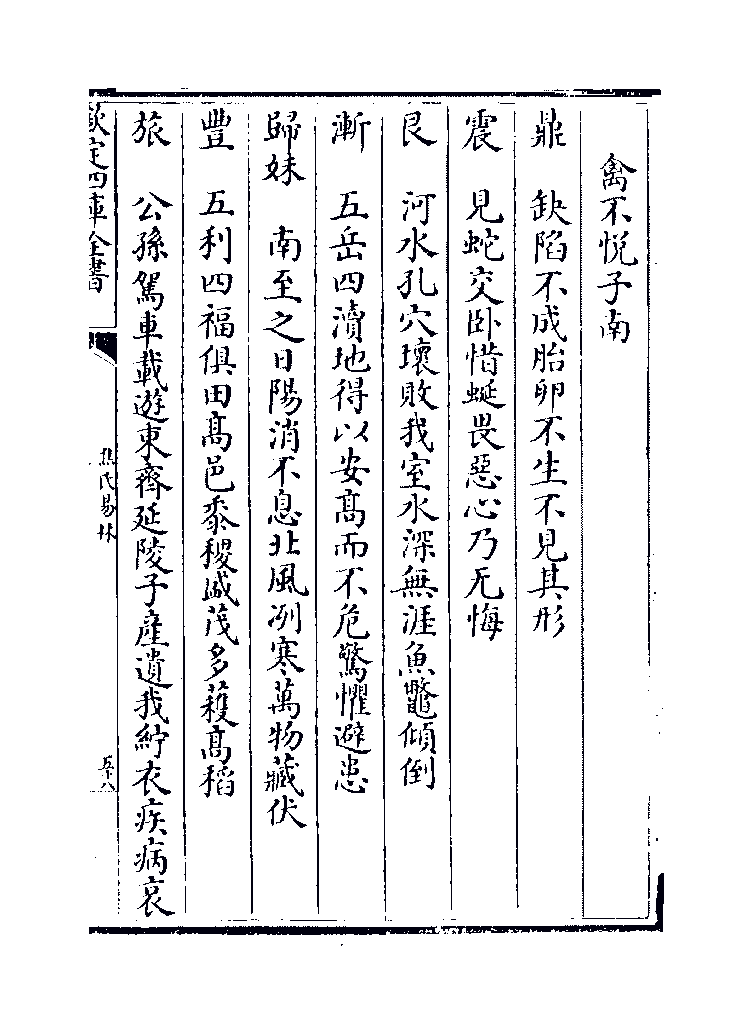 禽不悦子南
鼎　缺陷不成胎卵不生不見其形
震　見蛇交卧惜蜒畏惡心乃无悔
艮　河水孔穴壞敗我室水深無涯魚鼈傾倒
漸　五岳四瀆地得以安髙而不危驚懼避患
歸妹　南至之日陽消不息北風冽寒萬物藏伏
豐　五利四福俱田髙邑黍稷盛茂多穫髙稻
旅　公孫駕車載遊東齊延陵子產遺我紵衣疾病哀
欽定四庫全書
焦氏易林
五十八